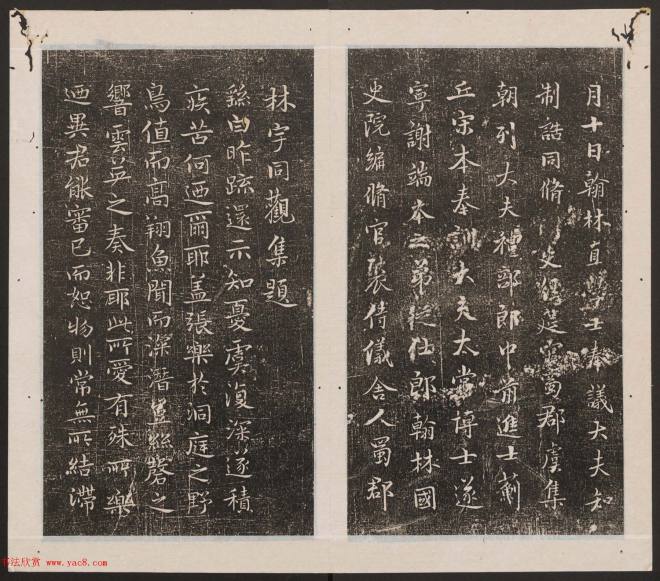 月十日翰林直學士奉議大夫知
制誥同脩史經筵官蜀郡虞集
朝列大夫禮部郎中前進士薊
丘宋本奉訓大夫太常博士遂
寧謝端本之弟從仕郎翰林國
史院編脩官褧脩儀舍人蜀郡
林宇同觀集題
繇白昨疏還示知憂虞復深遂積
疾苦何迺爾耶盖張樂於洞庭之野
鳥值而高翔魚聞而深潛豈絲磬之
響雲英之奏非耶此所愛有殊所樂
迺異君能審己而恕物則常無所結滞
书法欣赏 www.yac8.com